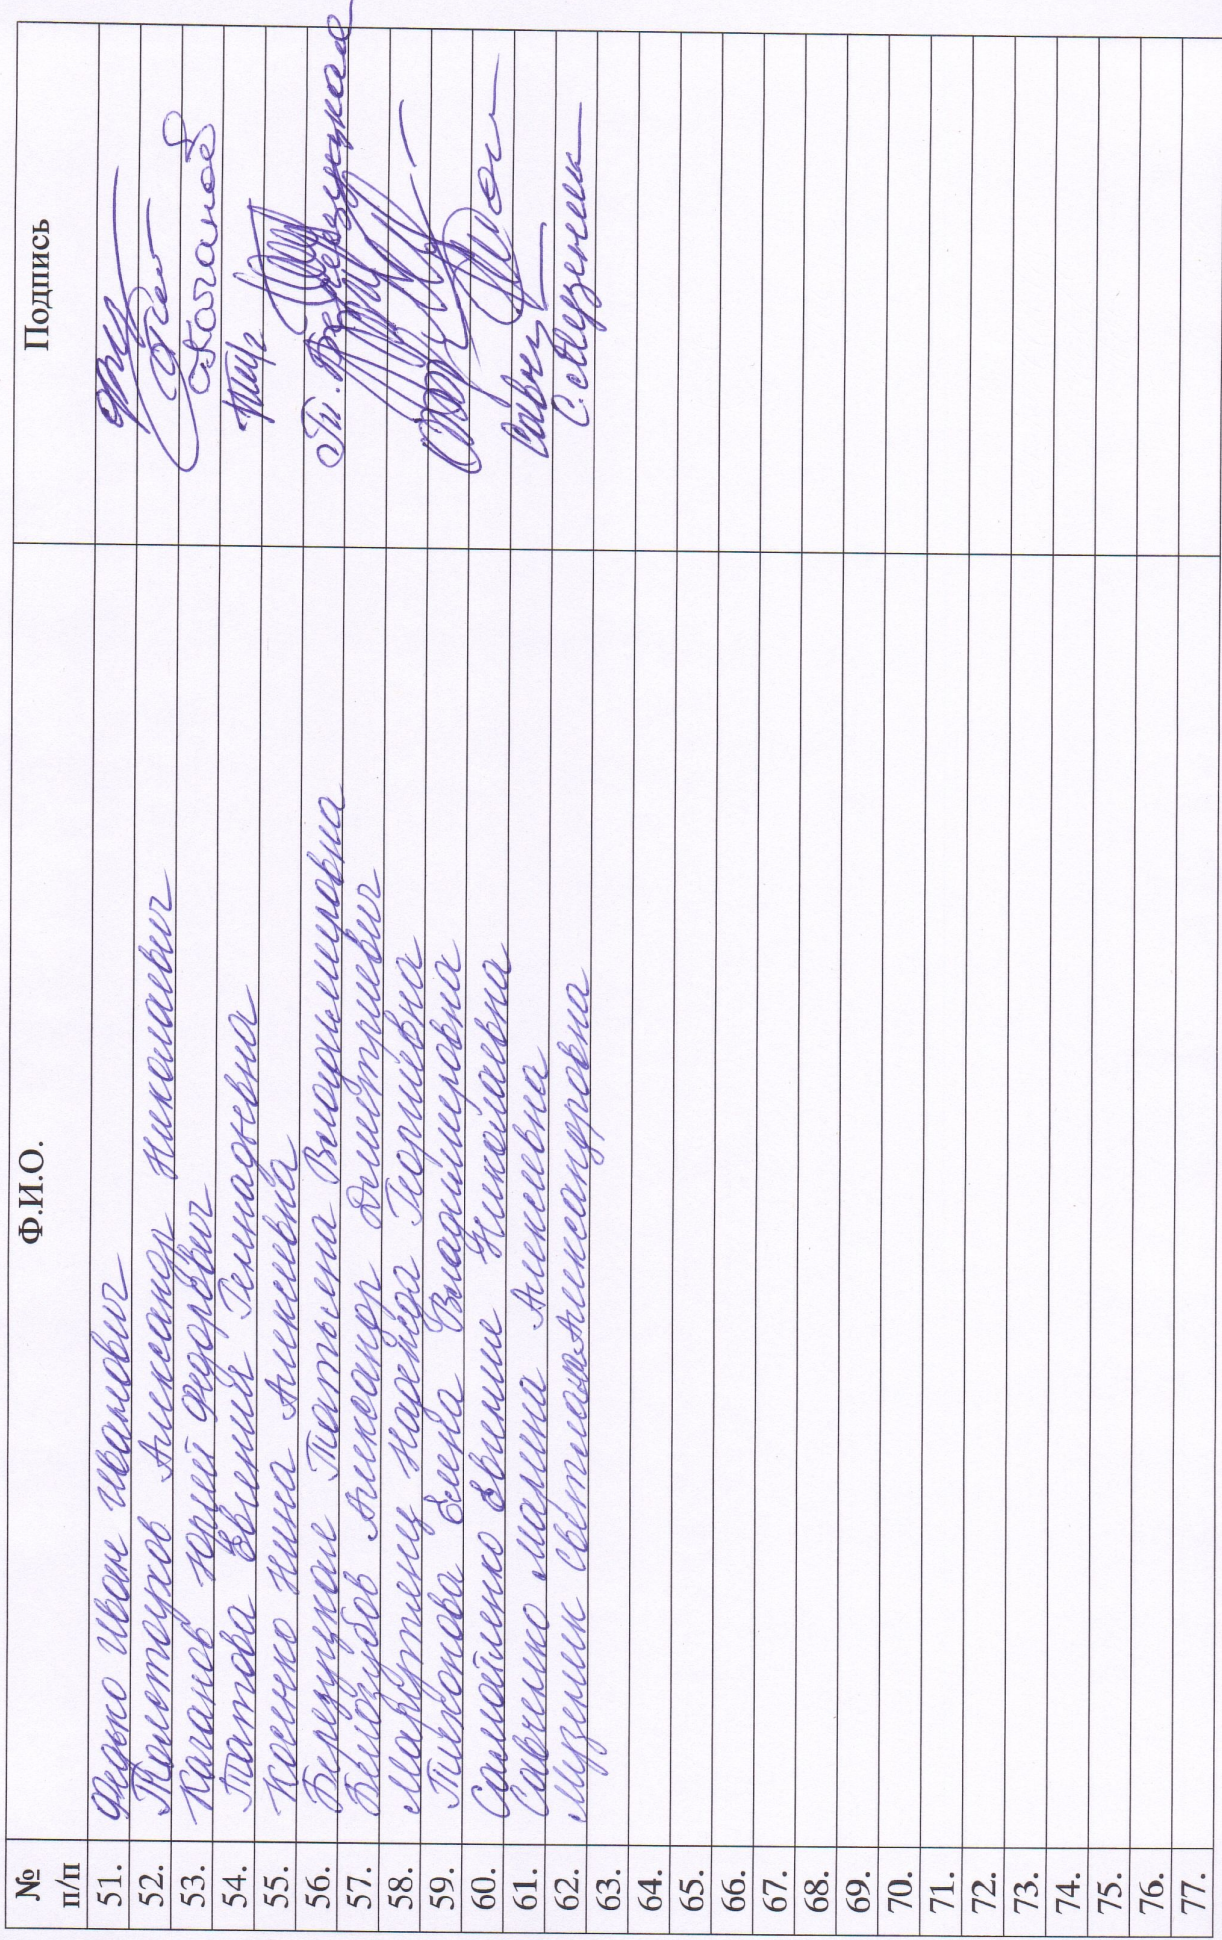 № п/п Ф.И.О. Подпись
51. Федько Иван Иванович
52. Толстоухов Александр Николаевич
53. Каганов Юрий Федорович Каганов
54. Татова Евгения Геннадьевна
55. Косенко Нина Алексеевна
56. Березуцкая Татьяна Владимировна Т. Березуцкая
57. Белозубов Александр Дмитриевич
58. Макутенц Надежда Георгиевна
59. Тихонова Елена Владимировна
60. Самойленко Евгения Николаевна
61. Савченко Марина Алексеевна
62. Музеник Светлана Александровна С. Музеник
63.
64.
65.
66.
67.
68.
69.
70.
71.
72.
73.
74.
75.
76.
77.